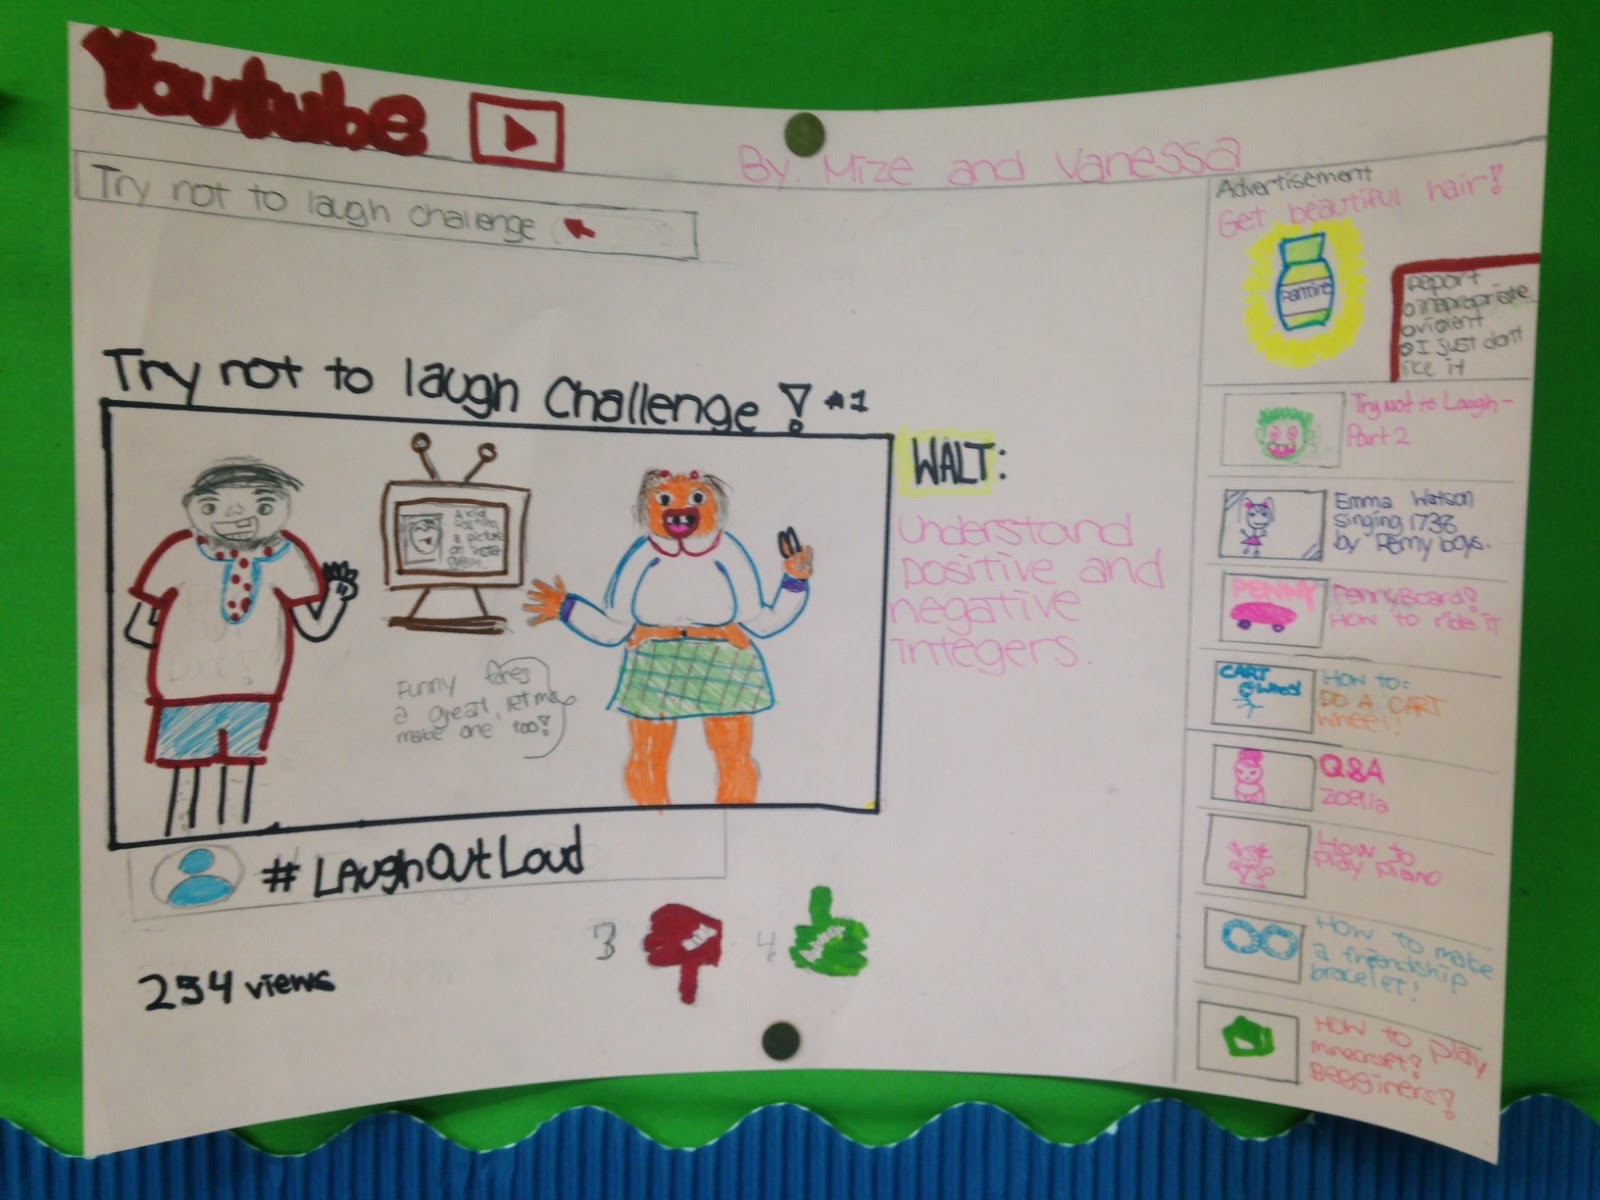 Youtube
By: Mize and Vanessa
Try not to laugh challenge
Try not to laugh Challenge! #1
A kid
posting
a picture
on insta
gram.
Funny faces
a great, let me
make one too!
WALT:
Understand
positive and
negative
integers.
# LAughOutLoud
254 views
3
4
Advertisement
Get beautiful hair!
Pantine
Report
o inapropriate
o violent
o I just dont
like it
Try not to Laugh-
Part 2
Emma Watson
singing 1738
by Remy boys.
PENNY
PennyBoard?
How to ride it
CART
wheel
HOW TO:
DO A CART
wheel!
Q&A
Zoella
How to
Play Piano
How to make
a friendship
bracelet!
How to play
minecraft?
Begginers?